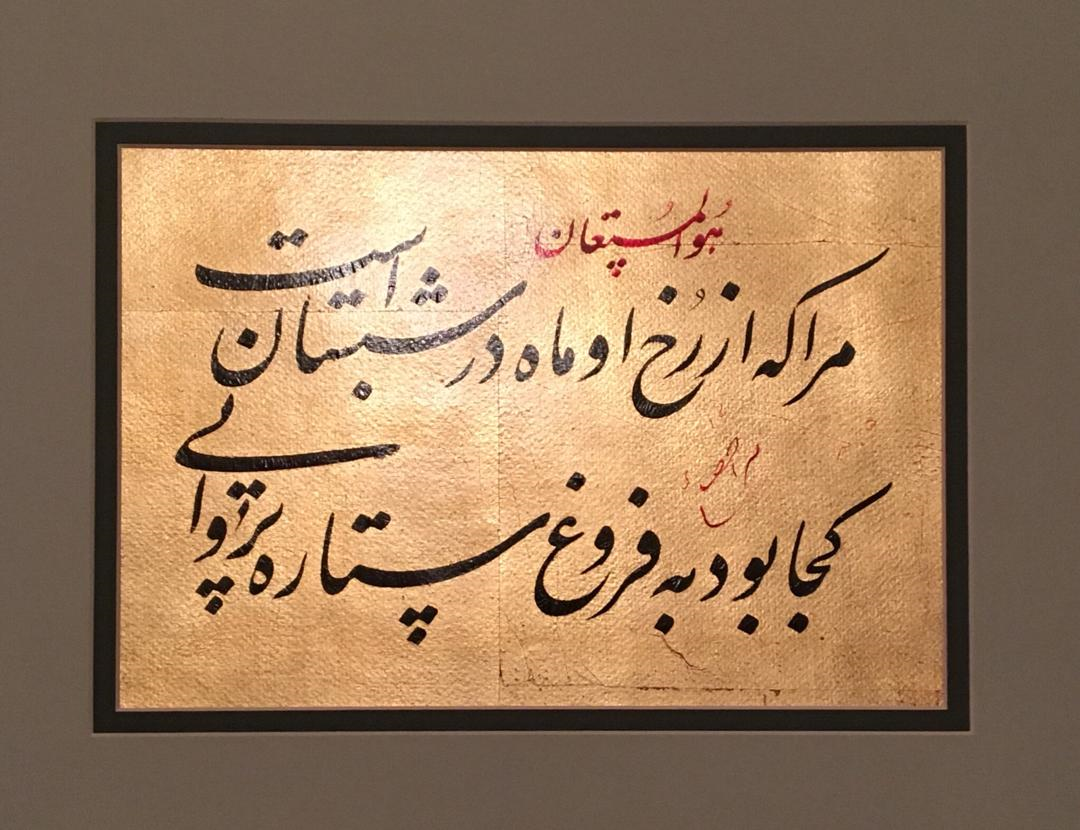 هُوالمُستعان
مرا که از رُخ او ماه در شبستان است
کجا بود به فروغ ستاره پروائی